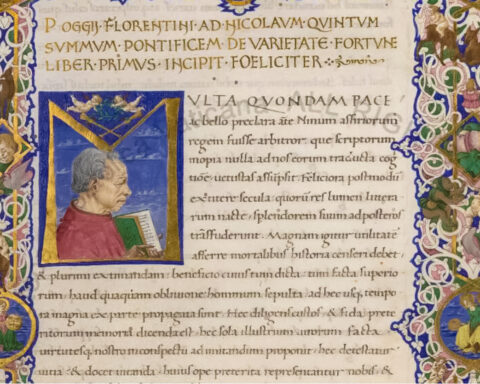 POGGII · FLORENTINI · AD · NICOLAVM · QVINTVM
SVMMVM · PONTIFICEM · DE VARIETATE · FORTVNE
LIBER · PRIMVS · INCIPIT · FOELICITER
MVLTA QVONDAM PACE
ac bello preclara ãte Ninum assiriorum
regem fuisse arbitror, que scriptorum
inopia nulla ad nos eorum traducta cog
uetustas Feliciora postmodũ
extitere secula, quorũ res lumen littera
rum nacte, splendorem suum ad posteros
trasfuderunt. Magnam igitur utilitatẽ
afferre mortalibus historia censeri debet
& plurimi existimandam, beneficio cuius tum dicta, tum facta superio
rum, haud quaquam obliuione hominum sepulta, ad hec usq; tempo
ra magna exe parte propagata sunt. Hec diligens custos & fida prete
ritorum memoria dicenda est: hec sola illustrium uirorum facta
uirtutesq; nostro in conspectu ad imitandum proponit: hec detestatur
uitia & docet uitanda: huius ope preterita representantur nobis &